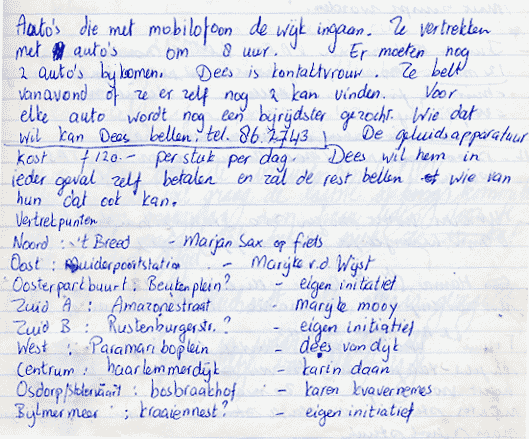 Auto's die met mobilofoon de wijk ingaan. Ze vertrekken
met auto's om 8 uur. Er moeten nog
2 auto's bijkomen. Dees is kontaktvrouw. Ze belt
vanavond of ze er zelf nog 2 kan vinden. Voor
elke auto wordt nog een bijrijdster gezocht. Wie dat
wil kan Dees bellen: tel. 86.2743 De geluidsapparatuur
kost f 120.- per stuk per dag. Dees wil hem in
ieder geval zelf betalen en zal de rest bellen wie van
hun dat ook kan.
Vertrekpunten
Noord : 't Breed - Marjan Sax op fiets
Oost : Muiderpoortstation. - Marijke v.d. Wijst
Oosterparkbuurt: Beukenplein? - eigen initiatief
Zuid A : Amazonestraat - marijke mooy
Zuid B : Rustenburgerstr.? - eigen initiatief
West : Paramariboplein - dees van dyk
Centrum : haarlemmerdijk - karin daan
Osdorp/Slotervaart - bosbraakhof - karen kvavernemes
Bijlmermeer : kraaiennest? - eigen initiatief